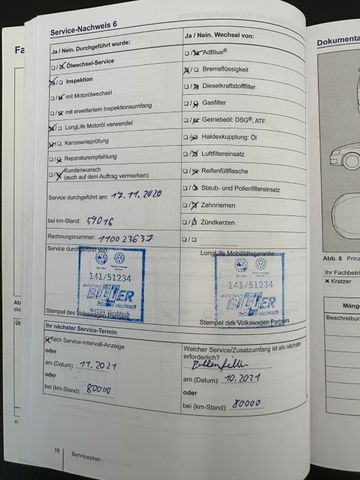 Service-Nachweis 6
Ja / Nein. Durchgeführt wurde:
Ölwechsel-Service
Inspektion
mit Motorölwechsel
mit erweitertem Inspektionsumfang
LongLife Motoröl verwendet
Karosserieprüfung
Reparaturempfehlung
Kundenwunsch
(auch auf dem Auftrag vermerken)
Service durchgeführt am: 17.11.2020
bei km-Stand: 54016
Rechnungsnummer: 1100 23637
Service durchgeführt von:
141/51234
autohaus
BITTER
94234 Viechtach
Stempel des Volkswagen Partners
Ja / Nein. Wechsel von:
AdBlue®
Bremsflüssigkeit
Dieselkraftstofffilter
Gasfilter
Getriebeöl: DSG®, ATF
Haldexkupplung: Öl
Luftfiltereinsatz
Reifenfüllflasche
Staub- und Pollenfiltereinsatz
Zahnriemen
Zündkerzen
LongLife Mobilitätsgarantie
141/51234
autohaus
BITTER
Viechtach
Stempel des Volkswagen Partners
Ihr nächster Service-Termin
nach Service-Intervall-Anzeige
oder
am (Datum): 11.2021
oder
bei (km-Stand): 80000
Welcher Service/Zusatzumfang ist als nächster
erforderlich?
Pollenfilter
am (Datum): 10.2021
oder
bei (km-Stand): 80000
16 Serviceplan
Dokumenta
Abb. 8 Prinz
Ihr Fachbetri
Kratzer
Mänge
Beschreibung